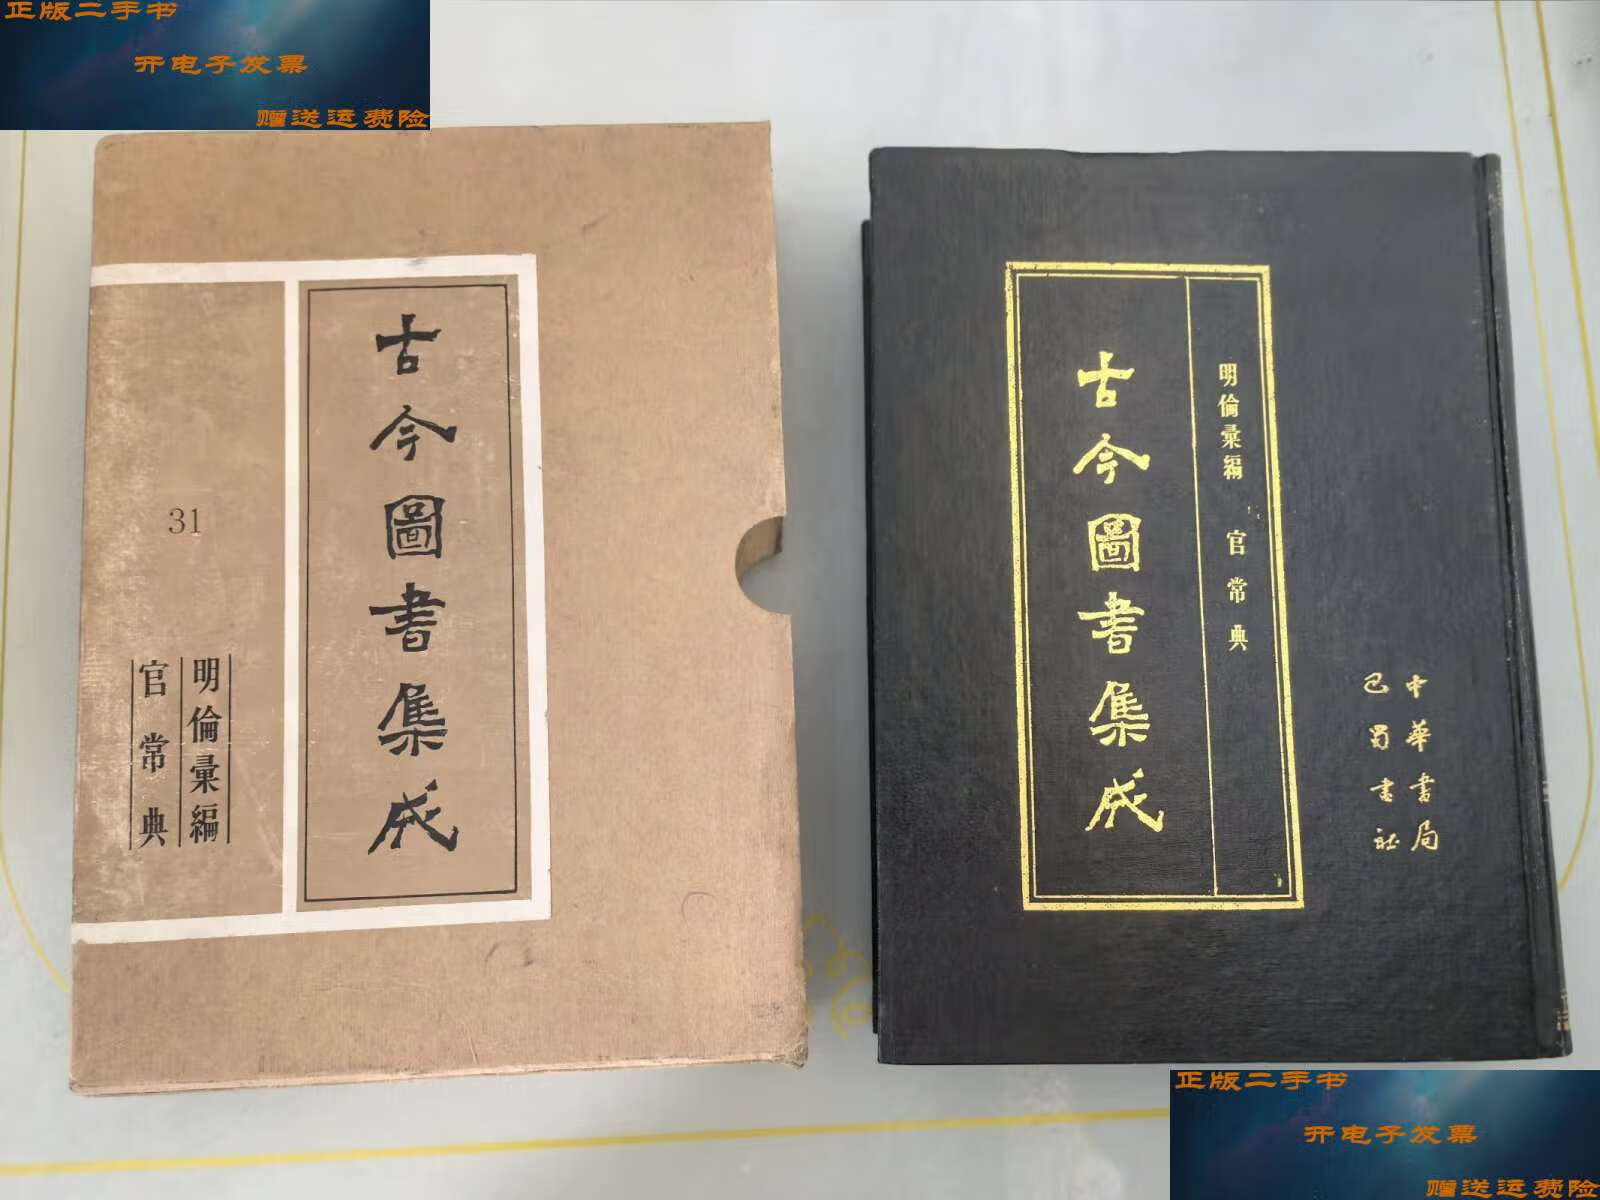 正版二手书
开电子发票
赠送运费险
古今圖書集成
31
明倫彙編
官常典
明倫彙編 官常典
古今圖書集成
中華書局
巴蜀書社
正版二手书
开电子发票
赠送运费险